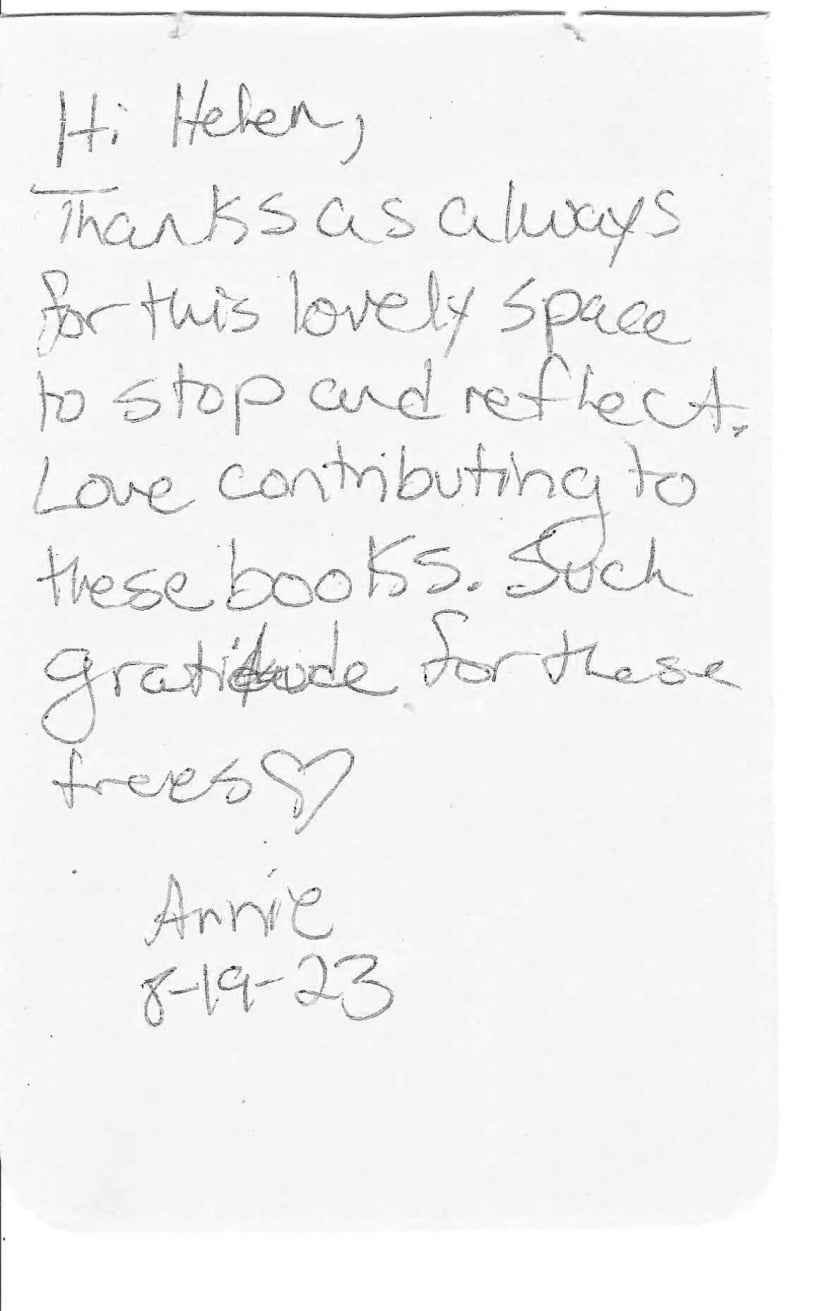 Hi Helen,
Thanks as always
for this lovely space
to stop and reflect.
Love contributing to
these books. Such
gratitude for these
trees♡
Annie
8-19-23